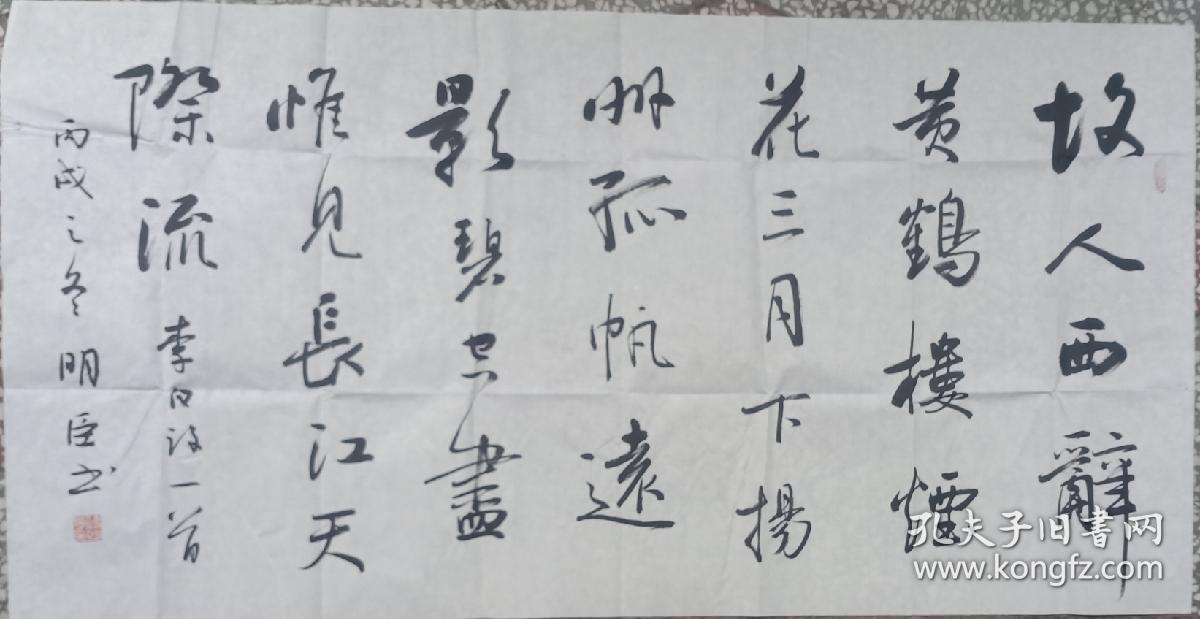 故人西辭
黄鶴樓煙
花三月下揚
州孤帆遠
影碧空盡
惟見長江天
際流
李白詩一首
丙戌之冬明臣书
孔夫子旧书网
www.kongfz.com